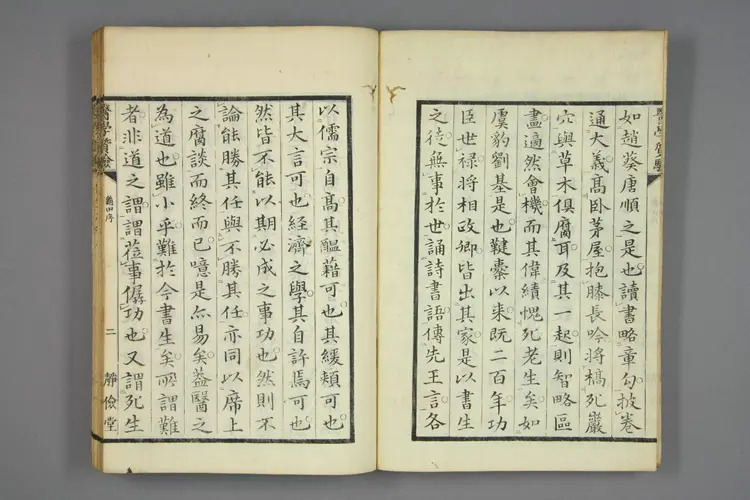 如趙葵唐順之是也讀書略章勾披卷
通大義高臥茅屋抱膝長吟將槁死巖
穴與草木俱腐耳及其一起則智略區
畫適然會機而其偉績愧死老生矣如
虞豹劉基是也鞬櫜以来既二百年功
臣世禄將相政卿皆出其家是以書生
之徒無事於世誦詩書語傳先王言各
以儒宗自高其醞藉可也其緩頰可也
其大言可也經濟之學其自許焉可也
然皆不能以期必成之事功也然則不
論能勝其任與不勝其任亦同以席上
之腐談而終而已噫是亦易矣蓋醫之
為道也雖小乎難於今書生矣所謂難
者非道之謂謂莅事僝功也又謂死生
醫學質驗
序
二
靜儉堂